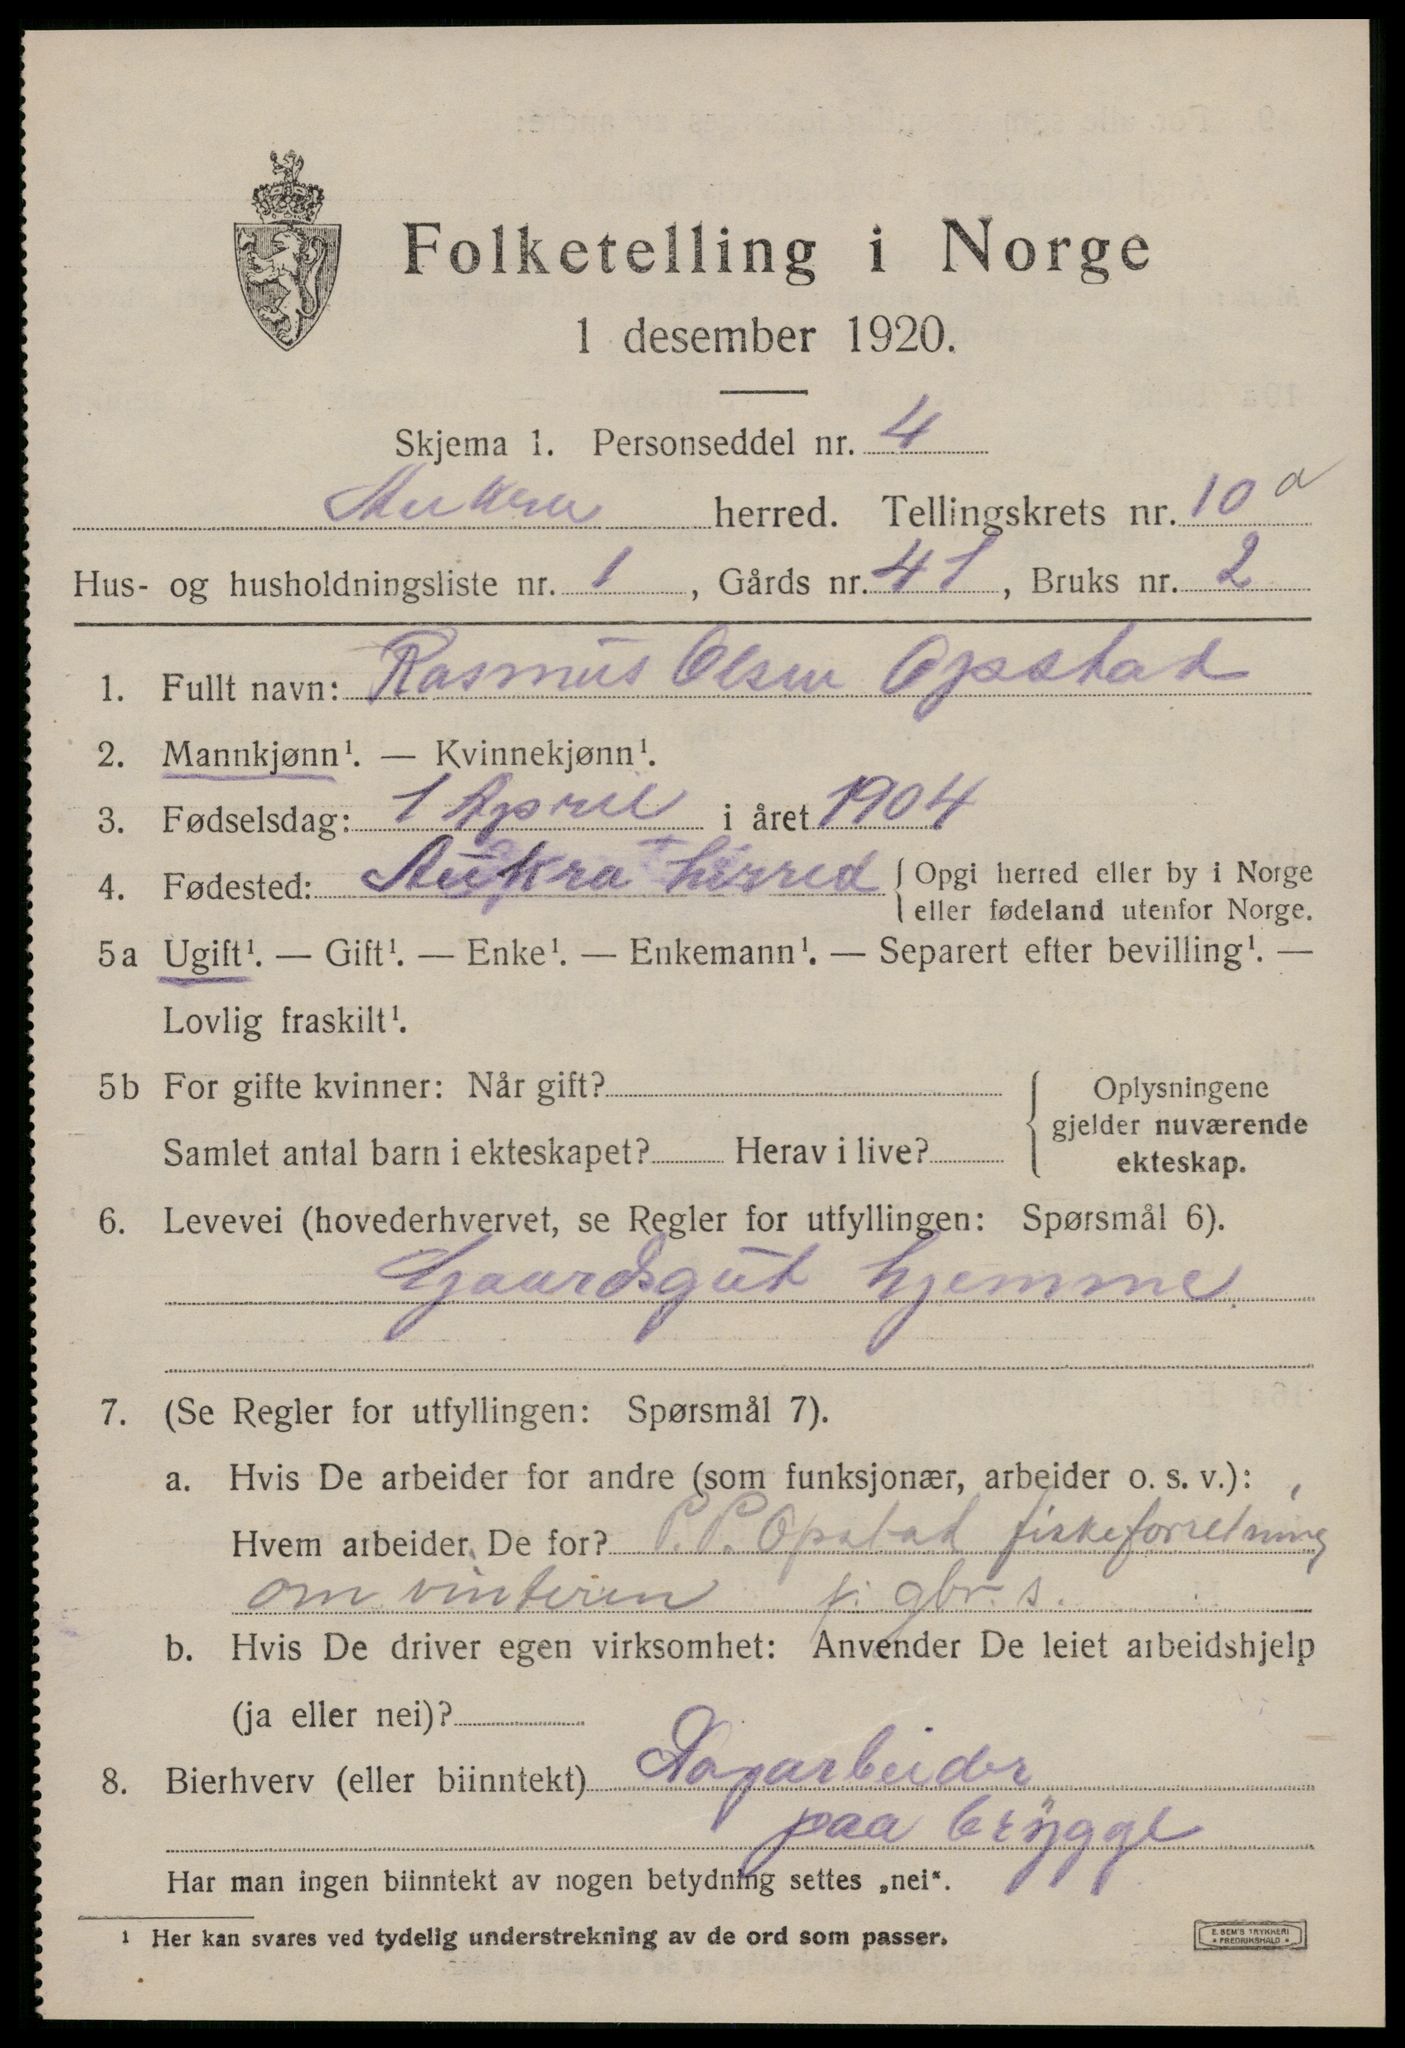 Folketelling i Norge
1 desember 1920.
Skjema 1. Personseddel nr. 4
Aukra herred. Tellingskrets nr. 10 a
Hus- og husholdningsliste nr. 1, Gårds nr. 41, Bruks nr. 2
1. Fullt navn: Rasmus Olsen Opstad
2. Mannkjønn¹. — Kvinnekjønn¹.
3. Fødselsdag: 1 April i året 1904
4. Fødested: Aukra herred { Opgi herred eller by i Norge
eller fødeland utenfor Norge.
5a Ugift¹. — Gift¹. — Enke¹. — Enkemann¹. — Separert efter bevilling¹. —
Lovlig fraskilt¹.
5b For gifte kvinner: Når gift? { Oplysningene
gjelder nuværende
Samlet antal barn i ekteskapet? Herav i live?
ekteskap.
6. Levevei (hovederhvervet, se Regler for utfyllingen: Spørsmål 6).
Gaardsgut hjemme
7. (Se Regler for utfyllingen: Spørsmål 7).
a. Hvis De arbeider for andre (som funksjonær, arbeider o. s. v.):
Hvem arbeider De for? P. P. Opstad fiskeforretning
om vinteren f. gbr. s.
b. Hvis De driver egen virksomhet: Anvender De leiet arbeidshjelp
(ja eller nei)?
8. Bierhverv (eller biinntekt) Dagarbeider
paa brygge
Har man ingen biinntekt av nogen betydning settes „nei“.
¹ Her kan svares ved tydelig understrekning av de ord som passer.
E. SEM'S TRYKKERI
* FREDRIKSHALD *